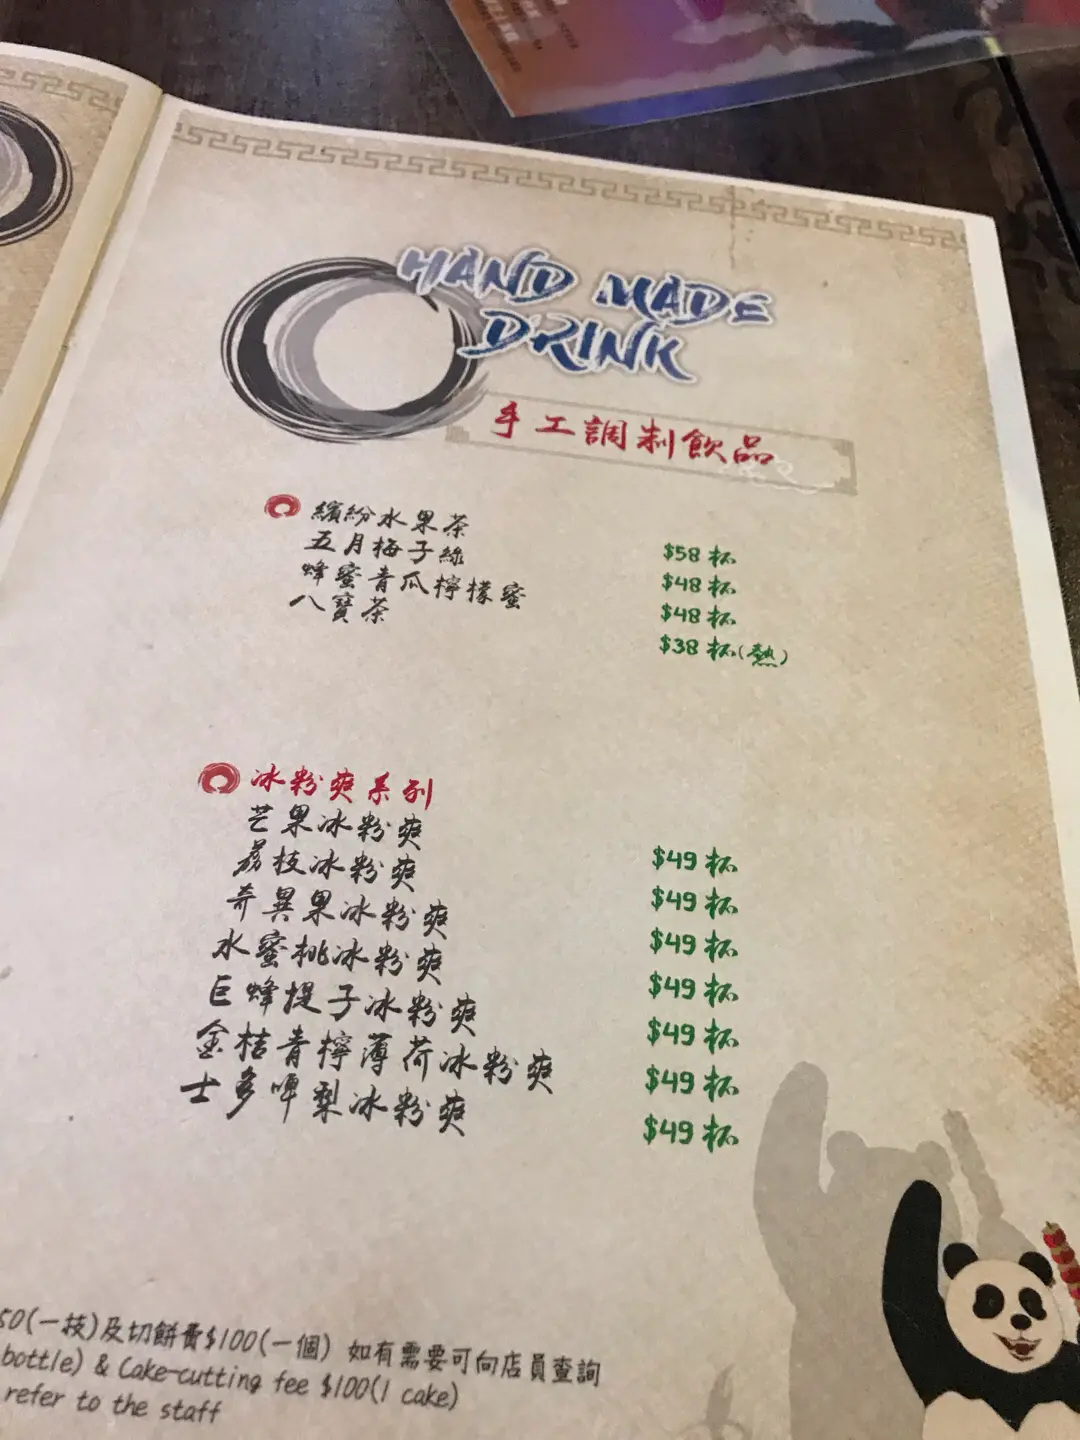 HAND MADE
DRINK
手工調制飲品
繽紛水果茶 $58 杯
五月梅子綠 $48 杯
蜂蜜青瓜檸檬蜜 $48 杯
八寶茶 $38 杯(熱)
冰粉爽系列
芒果冰粉爽 $49 杯
荔枝冰粉爽 $49 杯
奇異果冰粉爽 $49 杯
水蜜桃冰粉爽 $49 杯
巨蜂提子冰粉爽 $49 杯
金桔青檸薄荷冰粉爽 $49 杯
士多啤梨冰粉爽 $49 杯
50(一枝)及切餅費$100(一個) 如有需要可向店員查詢
bottle) & Cake-cutting fee $100(1 cake)
refer to the staff